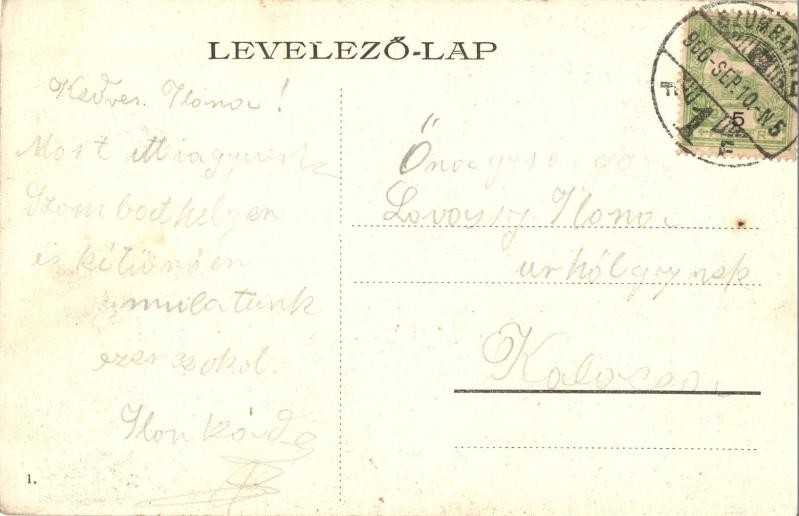 LEVELEZŐ-LAP
Kedves Ilona!
Most itt vagyunk
Szombathelyen
és kitünően
mulatunk
ezerszokol.
Ilonkád
Őnagysága
Lovassy Ilona
urhölgynek
Kalocsa
SZOMBATHELY
906 SEP. 10 N5
5
1.